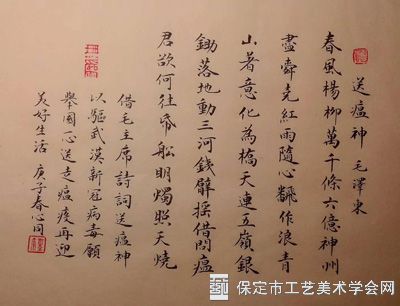 送瘟神 毛澤東
春風楊柳萬千條六億神州
盡舜堯紅雨隨心飜作浪青
山著意化為橋天連五嶺銀
鋤落地動三河鐵臂摇借問瘟
君欲何往帋船明燭照天燒
借毛主席詩詞送瘟神
以驅武漢新冠病毒願
舉國一心送走瘟疫再迎
美好生活 庚子春心同
保定市工艺美术学会网